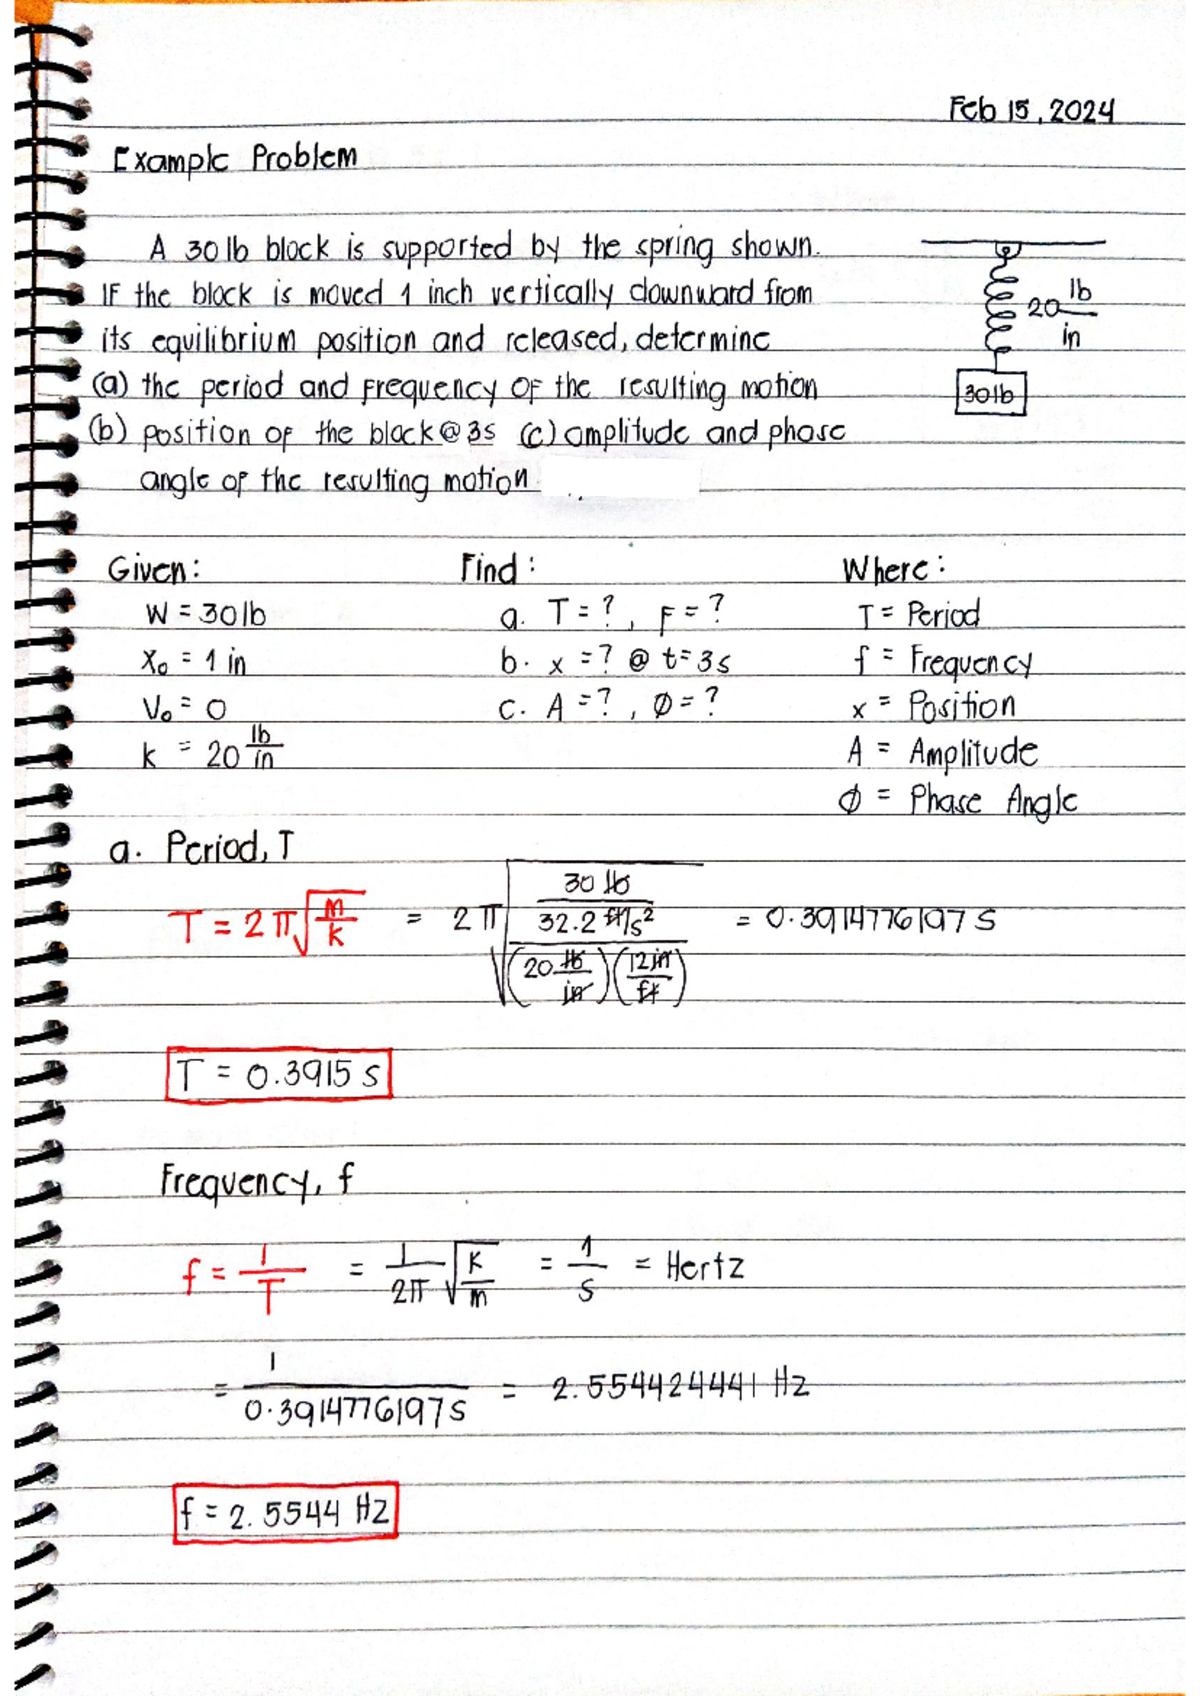 Feb 15, 2024
Example Problem
A 30 lb block is supported by the spring shown.
If the block is moved 1 inch vertically downward from
its equilibrium position and released, determine
(a) the period and frequency of the resulting motion
(b) position of the block @ 3s (c) amplitude and phase
angle of the resulting motion
20 lb/in
30 lb
Given: Find: Where:
W = 30 lb a. T = ?, F = ? T = Period
x₀ = 1 in b. x = ? @ t = 3s f = Frequency
V₀ = 0 c. A = ?, Ø = ? x = Position
k = 20 lb/in A = Amplitude
Ø = Phase Angle
a. Period, T
T = 2π√(m/k) = 2π√((30 lb / 32.2 ft/s²) / ((20 lb/in)(12 in/ft))) = 0.3914776197 s
T = 0.3915 s
Frequency, f
f = 1/T = 1/2π √(k/m) = 1/s = Hertz
= 1/0.3914776197 s = 2.554424441 Hz
f = 2.5544 Hz